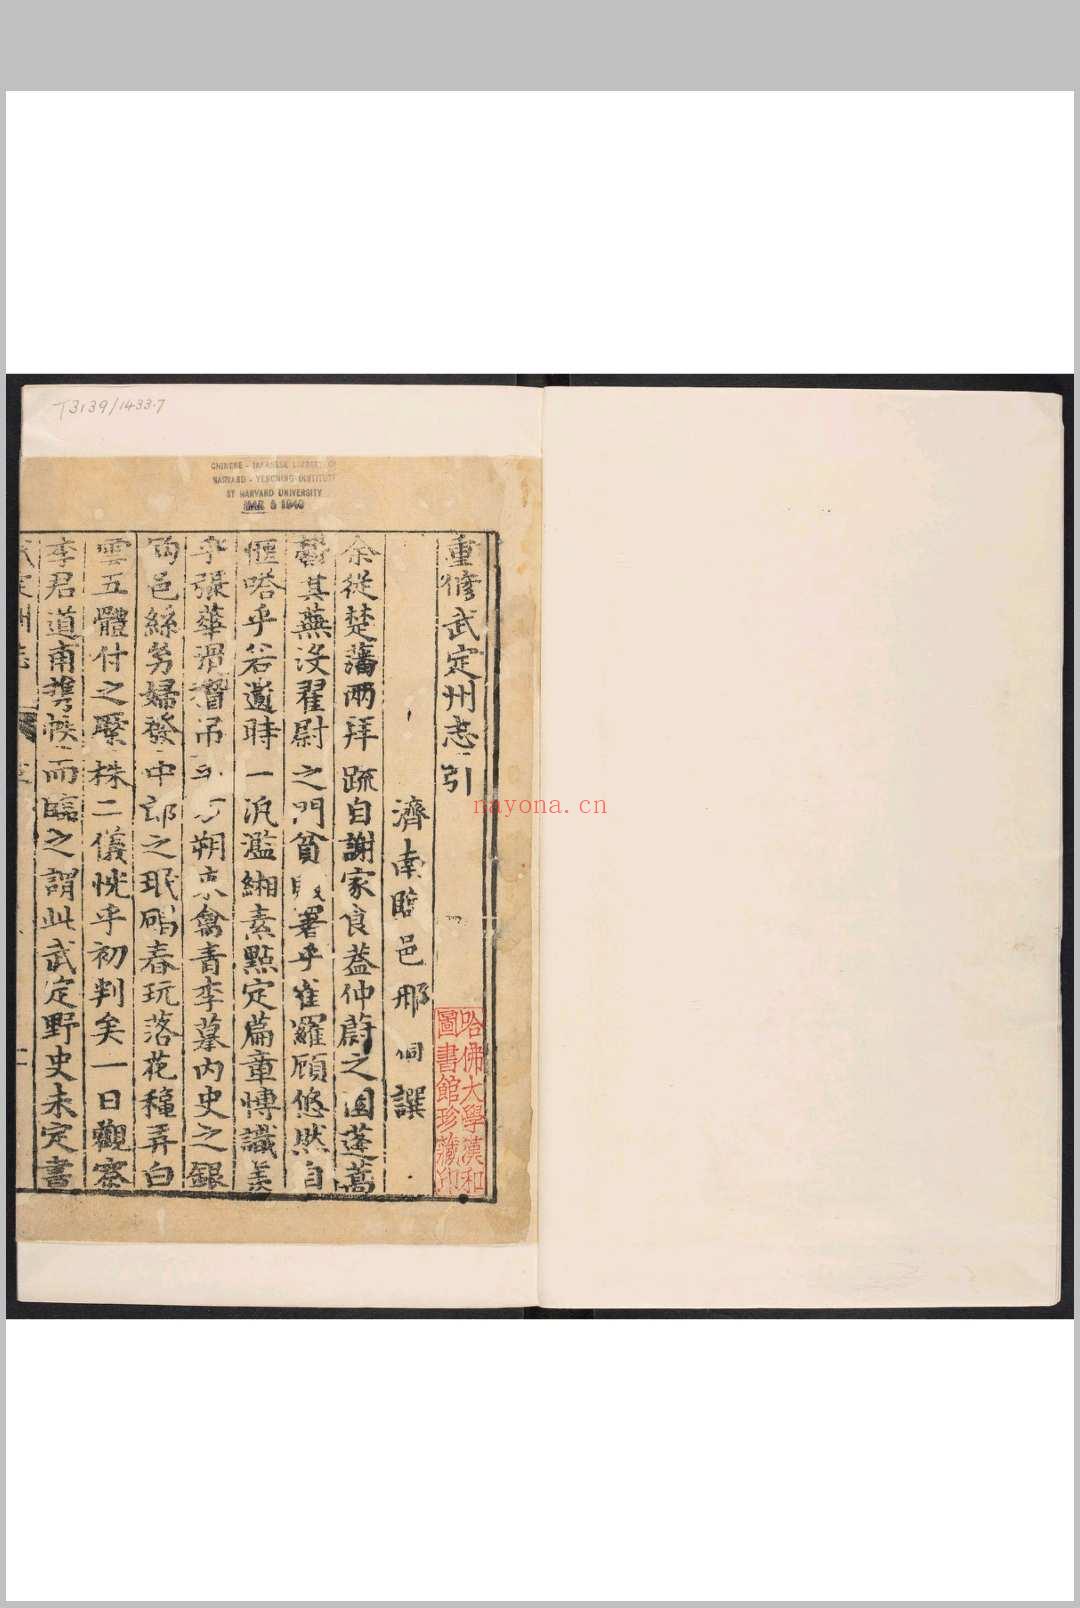 T3139/1433.7
CHINESE - JAPANESE LIBRARY OF
HARVARD - YENCHING INSTITUTE
AT HARVARD UNIVERSITY
MAR 5 1940
重修武定州志引
濟南臨邑邢侗譔
余從楚藩兩拜疏自謝家食葢仲蔚之園蓬蒿
鬱其蕪没翟尉之門貧署乎雀羅顧悠然自
愜嗒乎若遺時一汎濫緗素點定篇章愽識羨
乎張華滑稽吊方朔來禽青李摹内史之銀
鈎邑絲嫠婦發中郎之珉碣春玩落花穐弄白
雲五體付之緊株二儀恍乎初判矣一日觀察
李君道甫攜帙而臨之謂此武定野史未定書
哈佛大學漢和
圖書館珍藏印
nayona.cn